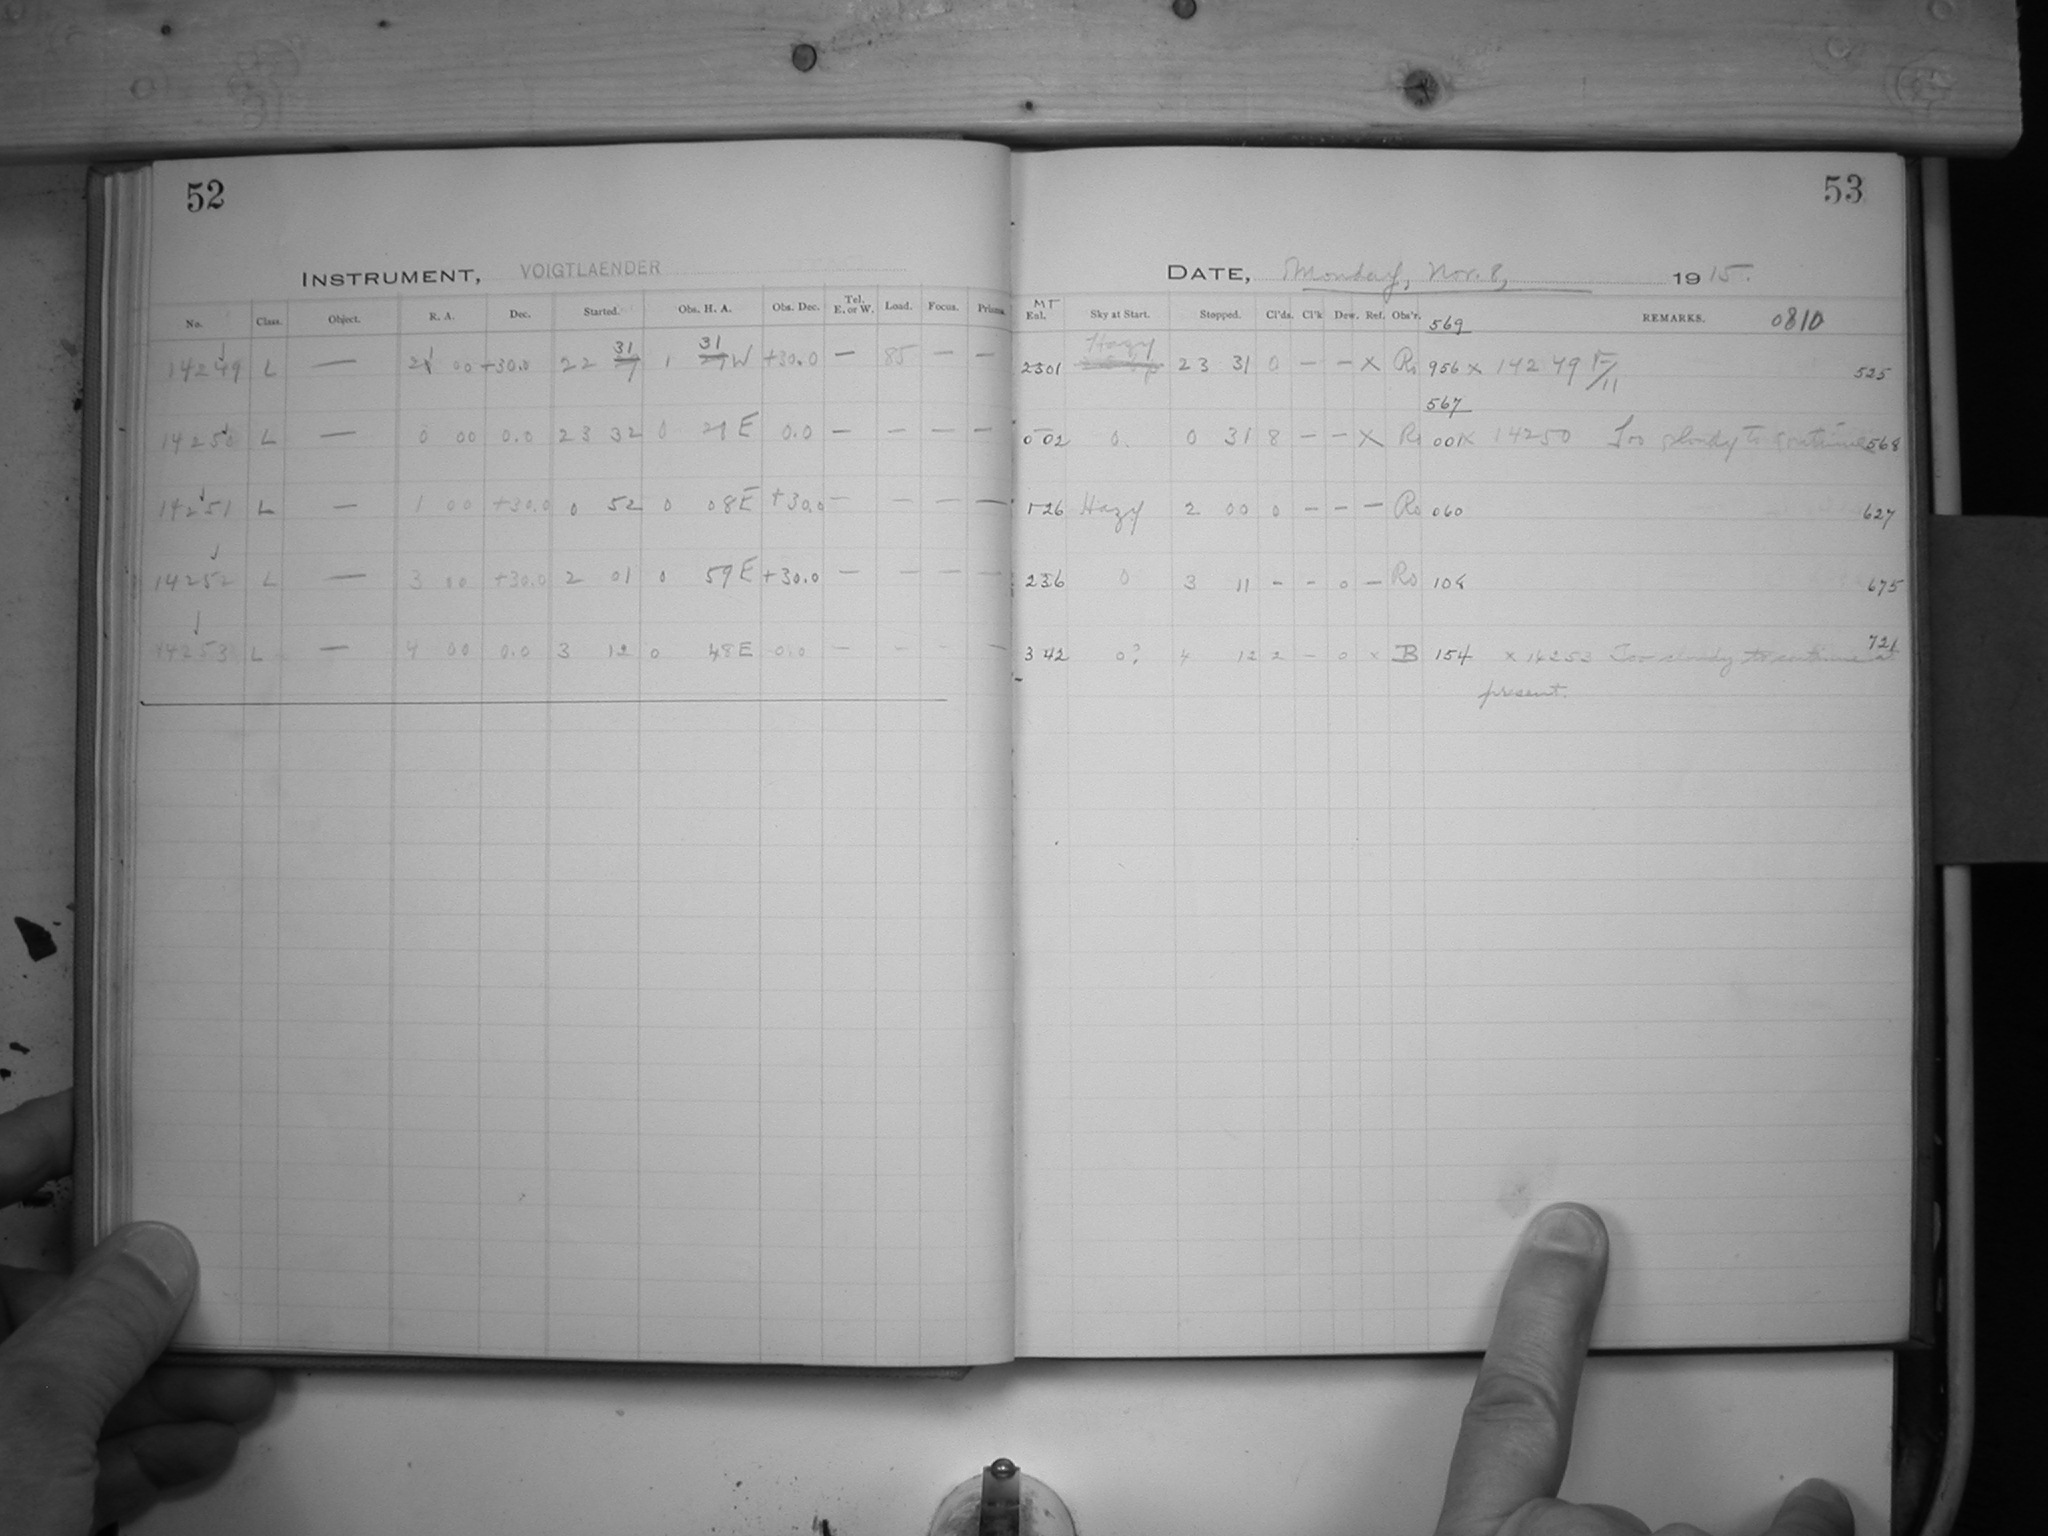 52
INSTRUMENT, VOIGTLAENDER
No. Class. Object. R. A. Dec. Started. Obs. H. A. Obs. Dec. Tel. E. or W. Load. Focus. Prisms.
14249 L — 21 00 +30.0 22 31 1 31 W +30.0 — 85 — —
14250 L — 0 00 0.0 23 32 0 29 E 0.0 — — — —
14251 L — 1 00 +30.0 0 52 0 08 E +30.0 — — — —
14252 L — 3 00 +30.0 2 01 0 59 E +30.0 — — — —
14253 L — 4 00 0.0 3 12 0 48 E 0.0 — — — —
53
DATE, Monday, Nov. 8, 1915.
MT
Enl. Sky at Start. Stopped. Cl'ds. Cl'k Dew. Ref. Obs'r. 569 REMARKS. 0810
2301 Hazy 23 31 0 — — X Ro 956 x 14249 F/11 525
567
002 0. 0 31 8 — — X Ro 001 x 14250 Too cloudy to continue 568
126 Hazy 2 00 0 — — — Ro 060 627
236 0 3 11 - - 0 — Ro 108 675
342 0? 4 12 2 — 0 x B 154 x 14253 Too cloudy to continue at 721
present.